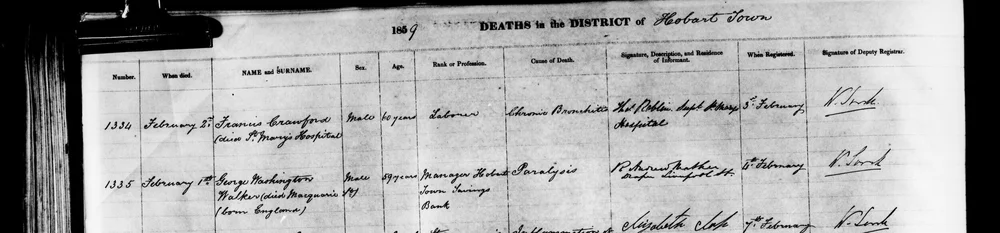 1859 DEATHS in the DISTRICT of Hobart Town
Number. When died. NAME and SURNAME. Sex. Age. Rank or Profession. Cause of Death. Signature, Description, and Residence of Informant. When Registered. Signature of Deputy Registrar.
1334 February 2d Francis Crawford Male 60 years Laborer Chronic Bronchitis Thos Roblin Supt St Marys 3d February
(died St Mary's Hospital Hospital
1335 February 1st George Washington Male 59 years Manager Hobart Paralysis R. Andrew Mather 4th February
Walker (died Macquarie St) Town Savings Draper Liverpool St.
(born England) Bank
Inflammation of Elizabeth 7th February